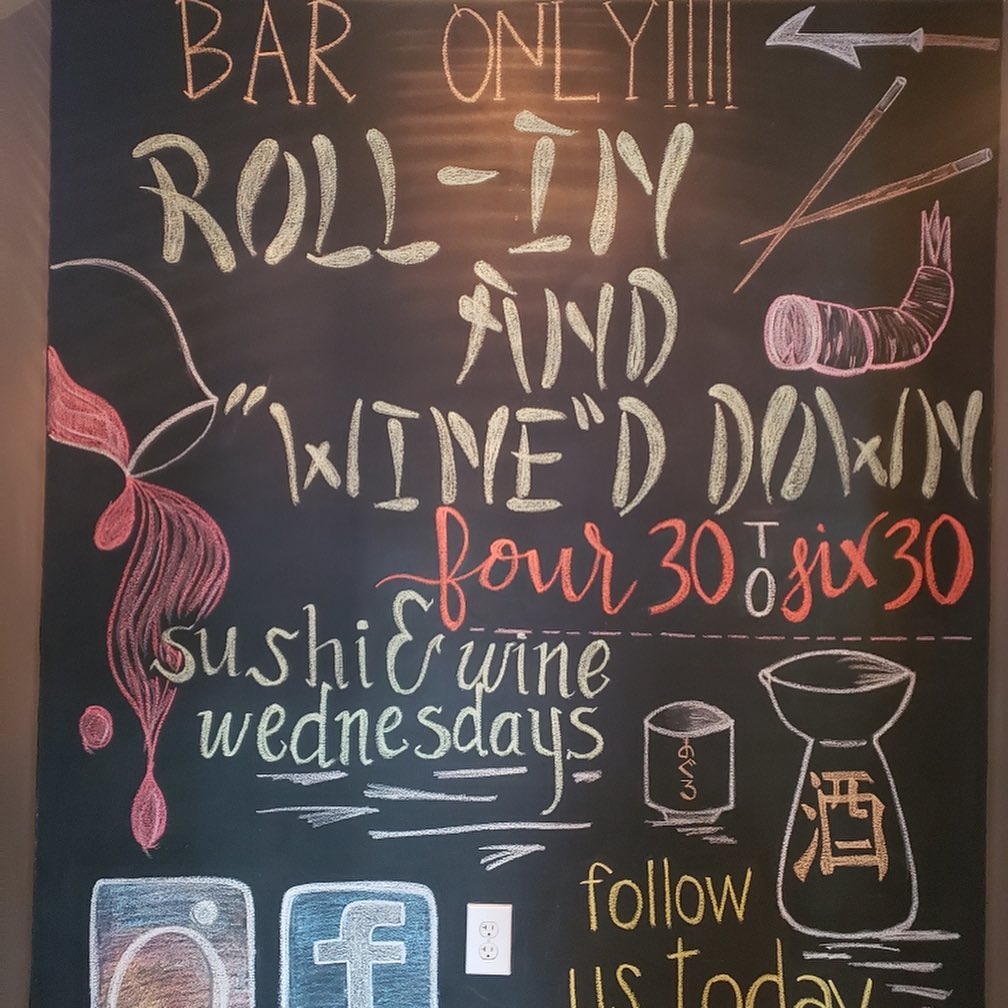 BAR ONLY!!!!
ROLL-IN
AND
"WINE"D DOWN
four 30 TO six 30
sushi & wine
wednesdays
酒
f
follow
us today